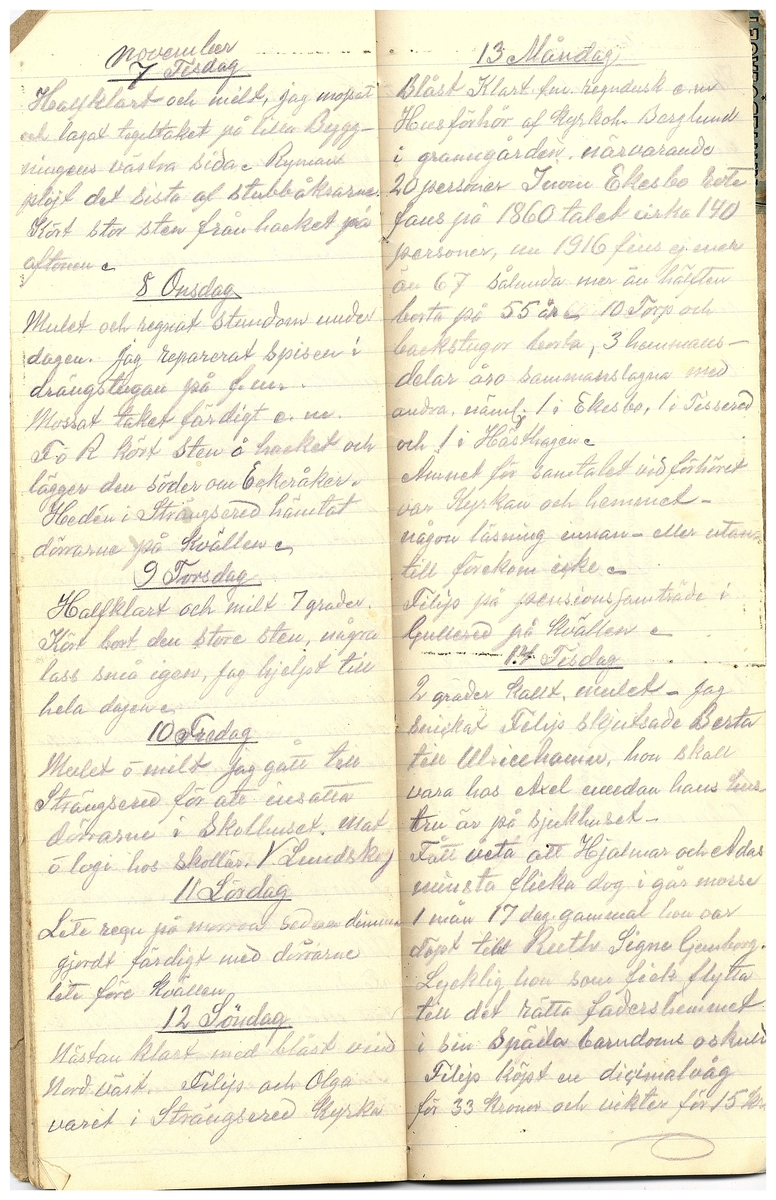 november
7 Tisdag
Halfklart och mildt, jag mossat
och lagat tegeltaket på lilla Bygg-
ningens västra sida. Ryman
plöjt det sista af stubbåkrarne.
Kört stor sten från hacket på
aftonen
8 Onsdag
Mulet och regnat stundom under
dagen. Jag reparerat spisen i
drängstugan på f.m.
Mossat taket färdigt e.m.
F o R kört sten å hacket och
lägger den söder om Eckråker.
Hedén i Strängsered hämtat
dörrarne på Kvällen
9 Torsdag
Halfklart och milt 7 grader.
Kört bort den store sten, några
lass små igen, jag hjelpt till
hela dagen
10 Fredag
Mulet o milt jag gått till
Strängsered för att insätta
dörrarne i Skolhuset. Mat
o logi hos skollär. V. Lundskog
11 Lördag
Lite regn på morron sedan dimma
gjordt färdigt med dörrarne
lite före Kvällen
12 Söndag
Nästan klart med blåst vind
Nordväst. Filip och Olga
varit i Strängsered Kyrka
13 Måndag
Blåst Klart fm. regndusk e.m
Husförhör af Kyrkoh. Berglund
i granngården, närvarande
20 personer Inom Ekesbo Rote
fans på 1860 talet cirka 140
personer, nu 1916 fins ej mer
än 67 sålunda mer än hälften
borta på 55 år 10 Torp och
backstugor borta, 3 hemmans-
delar äro sammanslagna med
andra, näml. 1 i Ekesbo, 1 i Tissered
och 1 i Hästhagen
Ämnet för samtalet vid förhöret
var Kyrkan och hemmet -
någon läsning innan- eller utan-
till förekom icke
Filip på pensionssamträde i
Gullered på Kvällen
14 Tisdag
2 grader Kallt, mulet - Jag
snickat Filip skjutsade Berta
till Ulricehamn, hon skall
vara hos Axel medan hans hus-
tru är på sjukhuset -
Fått veta att Hjalmar och Adas
minsta flicka dog i går morse
1 mån 17 dag. gammal hon var
döpt till Ruth Signe Gemborg.
Lycklig hon som fick flytta
till det rätta fadershemmet
i sin späda barndoms oskuld
Filip köpt en dicimalvåg
för 33 Kronor och vikter för 15 Kr.